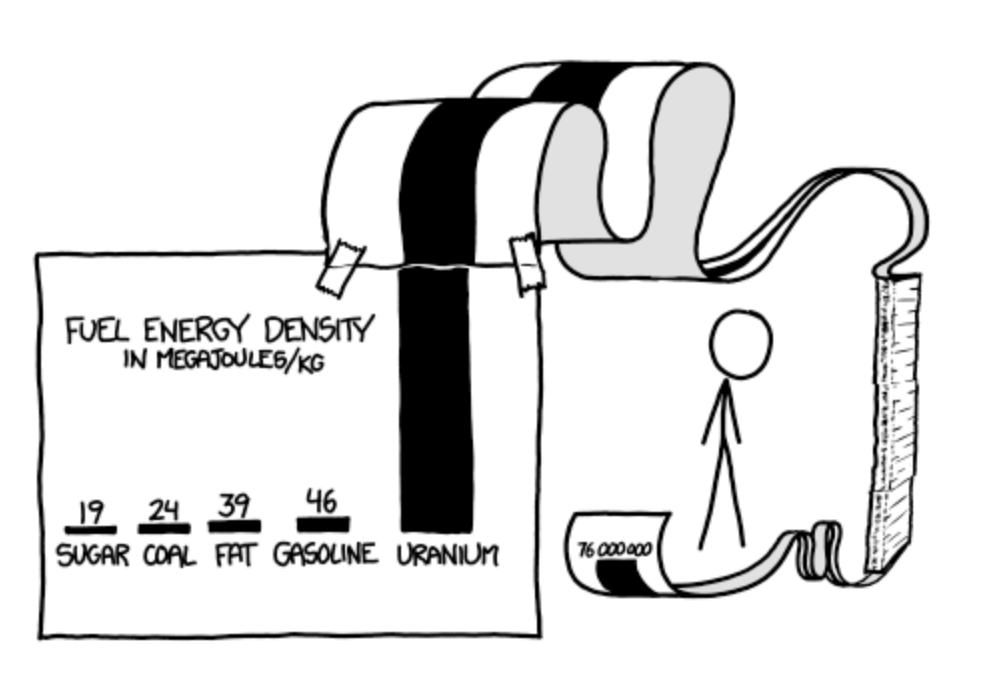 FUEL ENERGY DENSITY
IN MEGAJOULES/KG
19 24 39 46
SUGAR COAL FAT GASOLINE URANIUM
76 000 000